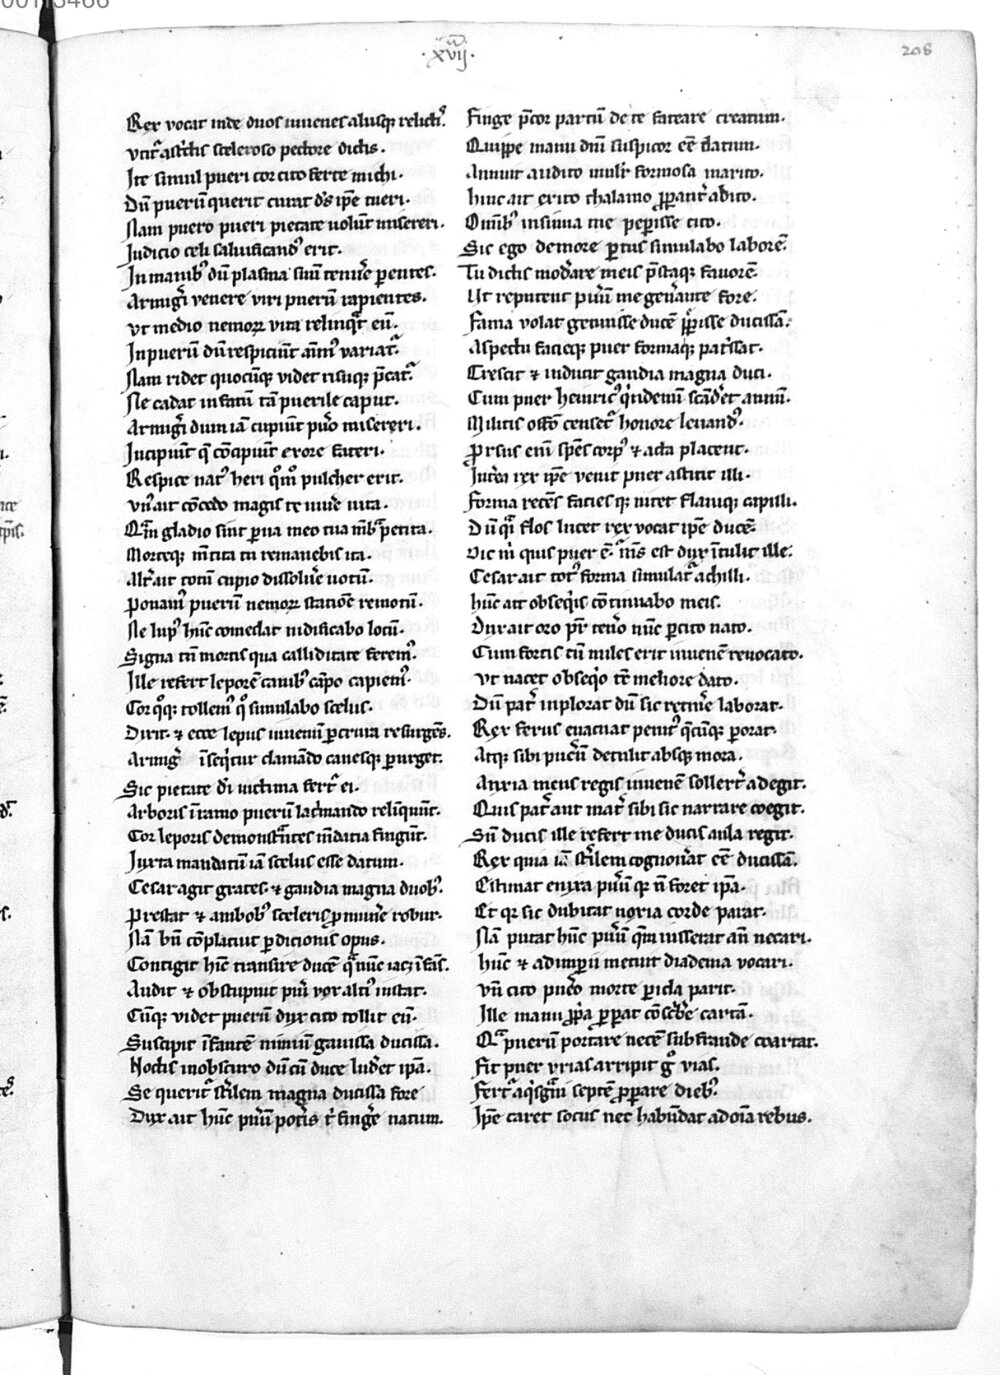 ·xvij·
208
Rex vocat inde duos iuuenes aliisqꝫ relictꝭ.
Vtitᷣ astrictis sceleroso pectore dictis.
Ite simul pueri cor cito ferte michi.
Dū puerū querit curat dꝰs ip̄e tueri.
Nam puero pueri pietate uolūt misereri.
Iudicio celi saluificandꝰ erit.
In manibꝰ dū plasma suū tenuēͬ ꝑentes.
Armigͥi venere viri puerū rapientes.
Vt medio nemorꝝ vita relinqͣt eū.
In puerū dū respiciūt aīmꝰ variatᷣ.
Nam ridet quocūqꝫ videt risuqꝫ p̄catᷣ.
Ne cadat infatū tā puerile caput.
Armigͥi dum iā cupiūt pu̾o misereri.
Incipiūt qͥ cōcipiūt errore fateri.
Respice natꝰ heri qͦm̄ pulcher erit.
Vnꝰ ait cōcedo magis te uiue̾ uita.
Qͣm gladio sint ꝑ uia meo tua mēbͣ petita.
Morteqꝫ mͭita tu remanebis ita.
Alt̾ ait totū cupio dissolue̾ uotū.
Ponamꝰ puerū nemorꝝ statiōe remotū.
Ne lupꝰ hūc comedat nidificabo locū.
Signa tn̄ mortis qua calliditate feremꝰ.
Ille refert leporē canibꝰ cāpo capiemꝰ.
Cor qͦqꝫ tollemꝰ qͦ simulabo scelus.
Dixit ⁊ ecce lepus iuuenū ꝑ crura resurgēs.
Armigͥ īseqͥtur clamādo canesqꝫ ꝑurget.
Sic pietate dͥi uictima fertᷣ ei.
Arboris ī ramo puerū lacͥmando relīquūt.
Cor leporis demonstͣntes mēdatia fingūt.
Iuxta mandatū iā scelus esse datum.
Cesar agit grates ⁊ gaudia magna duobꝰ.
Prestat ⁊ ambobꝰ sceleris ꝓ mune̾ robur.
Nā bn̄ cōplacuit ꝑdicionis opus.
Contigit hīc transire ducē qͣ nūc iacꝫ īfās.
Audit ⁊ obstupuit pu̾i vox altiꝰ instat.
Cūqꝫ videt puerū dux cito tollit eū.
Suscipit īfantē nimiū gauisa ducissa.
Noctis in obscuro dū cū duce lude̾t ip̄a.
Se queritᷣ st̾ilem magna ducissa fore
Dux ait hūc pu̾ū pot̾is t̾ finge̾ natum.
Finge p̄cor partū de te fateare creatum.
Quippe manu dn̄i suspicor eē datum.
Annuit audito mulr̾ formosa marito.
Hinc ait exito thalamo ꝓꝑant̾ adito.
Oīmbꝰ insinua me peperisse cito.
Sic ego de more ꝑtus simulabo laborē.
Tu dictis mode̾are meis p̄staqꝫ fauorē.
Ut reputent pu̾um me gen̾ante fore.
Fama volat genuisse ducē peꝑisse ducissā.
Aspectu facieqꝫ puer formaqꝫ pat̾ssat.
Crescit ⁊ inducit gaudia magna duci.
Cum puer heinricꝰ qͥridenū scāde̾t annū.
Militis offō censetᷣ honore leuandꝰ.
Ꝓrsus enī spēs corpꝰ ⁊ acta placent.
Int̾ea rex ip̄e venit puer astitit illi.
Forma recēs faciesqꝫ nitet flauiqꝫ capilli.
Dū qͣi flos lucet rex vocat ip̄e ducē.
Dic mͥ quis puer ē. nꝰs est dux ītulit ille.
Cesar ait totꝰ forma simulatᷣ achilli.
Hūc ait obseqͥis cōtinuabo meis.
Dux ait oro pr̾ ten̾o nūc ꝑcito nato.
Cum fortis tū miles erit iuuenē reuocato.
Vt vacet obseqͥo tē meliore dato.
Dū pat̾ inplorat dū sic retine̾ laborat.
Rex ferus euacuat penitꝰ qͥcūqꝫ ꝑorat.
Atqꝫ sibi pu̾ū detulit absqꝫ mora.
Anxia mens regis iuuenē sollert̾ adegit.
Quis pat̾ aut mat̾ sibi sic narrare coegit.
Sū ducis ille refert me ducis aula regit.
Rex quia iā st̾ilem cognou̾at eē ducissā.
Estimat enixa pu̾ū qꝫ n̄ foret ip̄a.
Et qꝫ sic dubitat noxia corde parat.
Nā putat hūc pu̾ū qͣm iusserat an̄ necari.
Hūc ⁊ ad inꝑii metuit diadema vocari.
Vn̄ cito pue̾o morte ꝑ icta parit.
Ille manu ꝓpͥa ꝓꝑat cōscͥbe̾ cartā.
Qͣ puerū portare necē sub fraude coartat.
Fit puer vrias arripit gͦ vias.
Fertᷣ aqͥsgͣni septē ꝓꝑare diebꝰ.
Ip̄e caret socus nec habūdat ad oīa rebus.